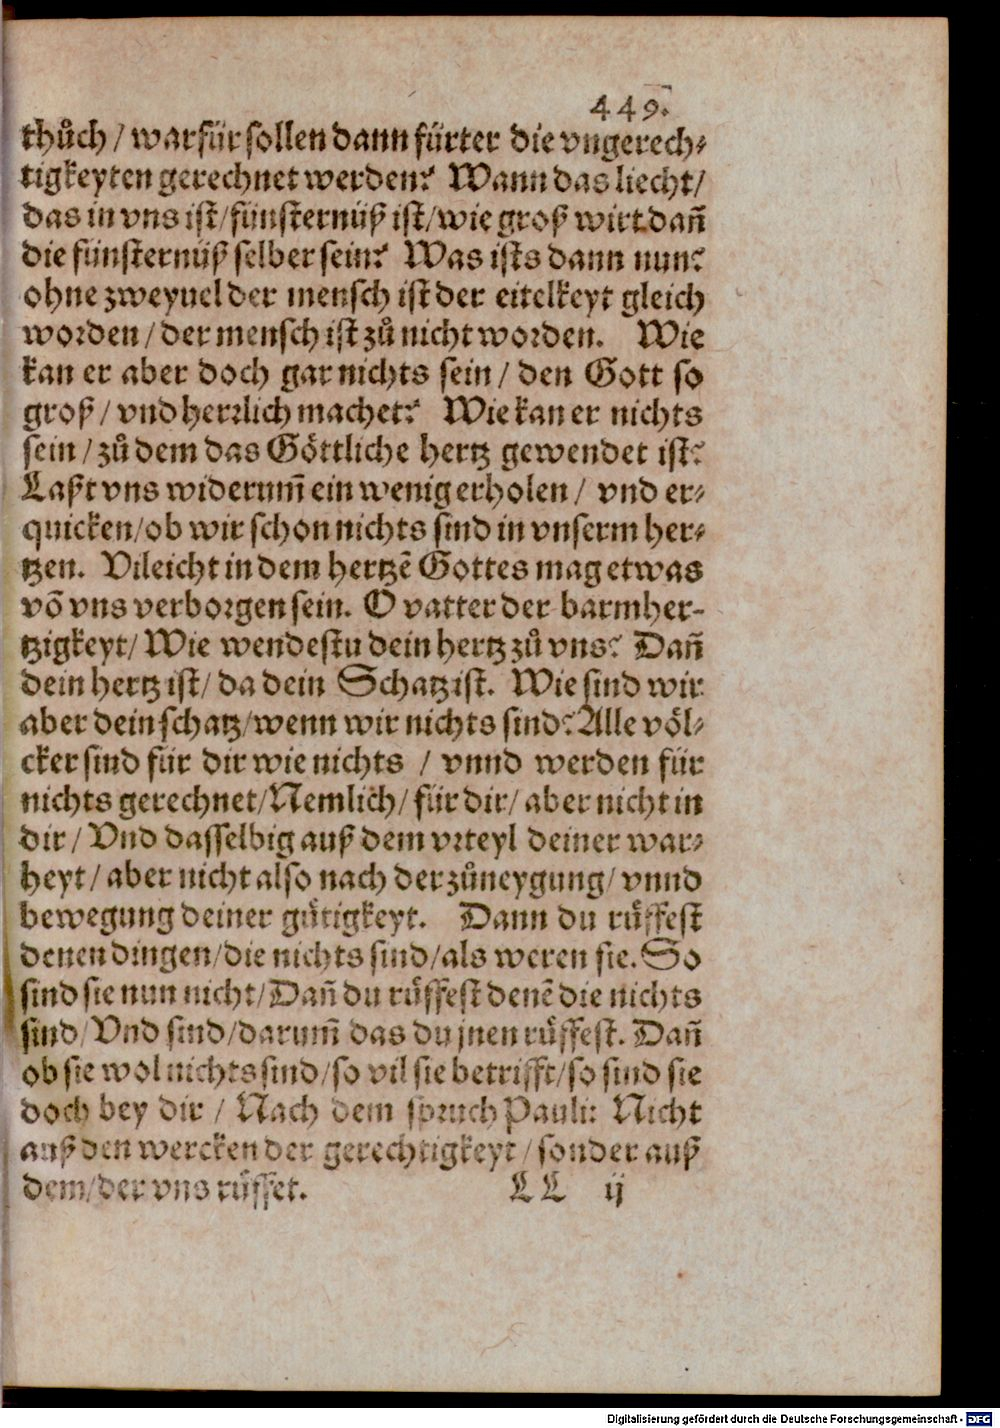 449.
thůch / warfür sollen dann fürter die vngerech-
tigkeyten gerechnet werden? Wann das liecht/
das in vns ist/fünsternüß ist/wie groß wirt dañ
die fünsternüß selber sein? Was ists dann nun?
ohne zweyuel der mensch ist der eitelkeyt gleich
worden / der mensch ist zů nicht worden. Wie
kan er aber doch gar nichts sein / den Gott so
groß / vnd herrlich machet? Wie kan er nichts
sein / zů dem das Göttliche hertz gewendet ist?
Laßt vns widerum̃ ein wenig erholen / vnd er-
quicken/ob wir schon nichts sind in vnserm her-
tzen. Vileicht in dem hertzẽ Gottes mag etwas
võ vns verborgen sein. O vatter der barmher-
tzigkeyt/ Wie wendestu dein hertz zů vns? Dañ
dein hertz ist/ da dein Schatz ist. Wie sind wir
aber dein schatz/wenn wir nichts sind? Alle völ-
cker sind für dir wie nichts / vnnd werden für
nichts gerechnet/Nemlich/ für dir/ aber nicht in
dir / Vnd dasselbig auß dem vrteyl deiner war-
heyt / aber nicht also nach der zůneygung/ vnnd
bewegung deiner gütigkeyt. Dann du rüffest
denen dingen/die nichts sind/als weren sie. So
sind sie nun nicht/Dañ du rüffest denẽ die nichts
sind/ Vnd sind/darum̃ das du jnen rüffest. Dañ
ob sie wol nichts sind/so vil sie betrifft/so sind sie
doch bey dir / Nach dem spruch Pauli: Nicht
auß den wercken der gerechtigkeyt / sonder auß
dem/der vns rüffet. LL ij
Digitalisierung gefördert durch die Deutsche Forschungsgemeinschaft - DFG